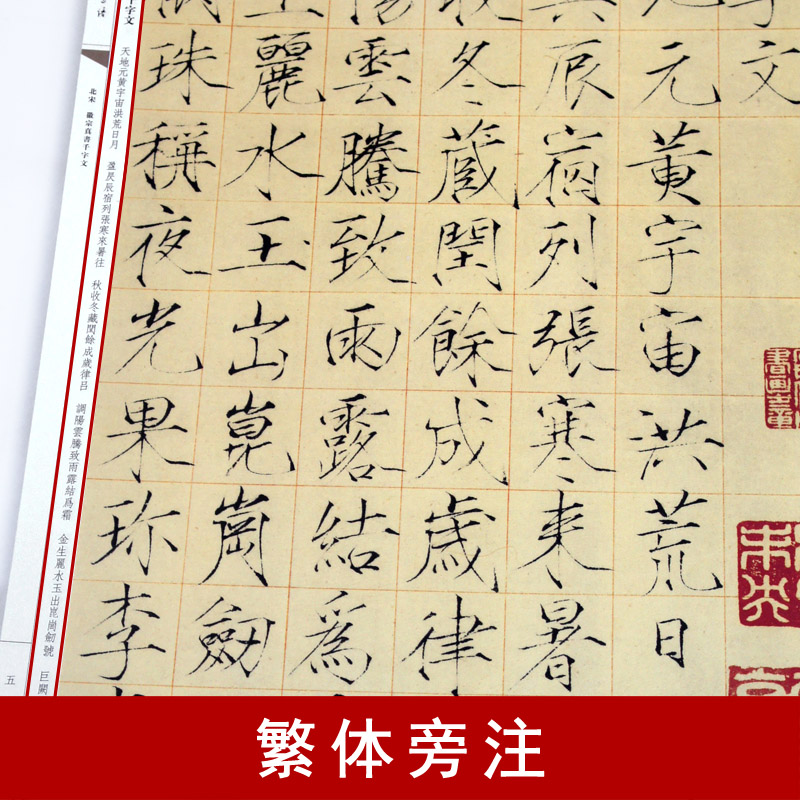 文
元黄宇宙洪荒日
辰宿列張寒来暑
收冬蔵閏餘成歳律
陽雲騰致雨露結爲
麗水玉出崑崗劔
珠稱夜光果珍李
千字文
天地元黄宇宙洪荒日月 盈昃辰宿列張寒來暑往 秋收冬藏閏餘成歲律吕 調陽雲騰致雨露結爲霜 金生麗水玉出崑崗劒號 巨闕
北宋 徽宗真書千字文
五
繁体旁注